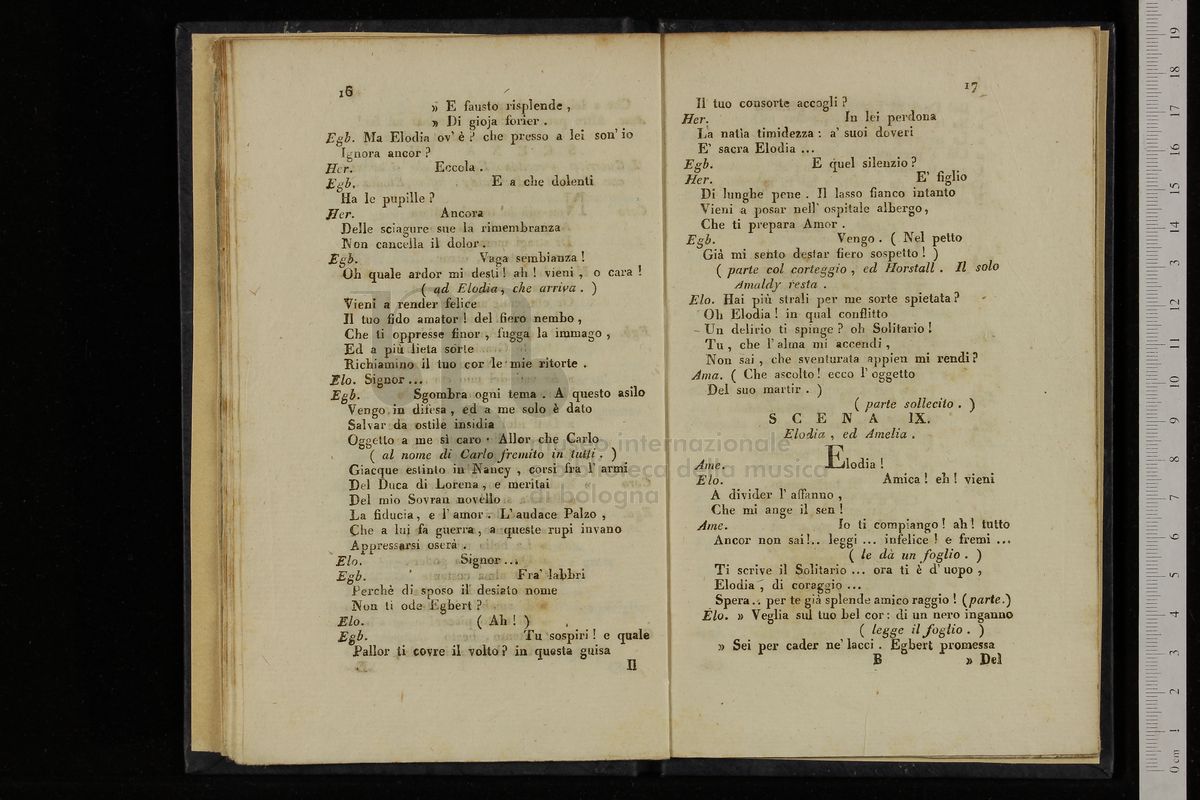 16
» E fausto risplende ,
» Di gioja forier .
Egb. Ma Elodia ov' è ? che presso a lei son' io
Ignora ancor ?
Her. Eccola .
Egb. E a che dolenti
Ha le pupille ?
Her. Ancora
Delle sciagure sue la rimembranza
Non cancella il dolor .
Egb. Vaga sembianza !
Oh quale ardor mi desti ! ah ! vieni , o cara !
( ad Elodia , che arriva . )
Vieni a render felice
Il tuo fido amator ! del fiero nembo ,
Che ti oppresse finor , fugga la immago ,
Ed a più lieta sorte
Richiamino il tuo cor le mie ritorte .
Elo. Signor ...
Egb. Sgombra ogni tema . A questo asilo
Vengo in difesa , ed a me solo è dato
Salvar da ostile insidia
Oggetto a me sì caro . Allor che Carlo
( al nome di Carlo fremito in tutti . )
Giacque estinto in Nancy , corsi fra l' armi
Del Duca di Lorena , e meritai
Del mio Sovran novello
La fiducia , e l' amor . L' audace Palzo ,
Che a lui fa guerra , a queste rupi invano
Appressarsi oserà .
Elo. Signor ...
Egb. Fra' labbri
Perchè di sposo il desiato nome
Non ti ode Egbert ?
Elo. ( Ah ! )
Egb. Tu sospiri ! e quale
Pallor ti covre il volto ? in questa guisa
Il
17
Il tuo consorte accogli ?
Her. In lei perdona
La natìa timidezza : a' suoi doveri
E' sacra Elodia ...
Egb. E quel silenzio ?
Her. E' figlio
Di lunghe pene . Il lasso fianco intanto
Vieni a posar nell' ospitale albergo ,
Che ti prepara Amor .
Egb. Vengo . ( Nel petto
Già mi sento destar fiero sospetto ! )
( parte col corteggio , ed Horstall . Il solo
Amaldy resta .
Elo. Hai più strali per me sorte spietata ?
Oh Elodia ! in qual conflitto
Un delirio ti spinge ? oh Solitario !
Tu , che l' alma mi accendi ,
Non sai , che sventurata appien mi rendi ?
Ama. ( Che ascolto ! ecco l' oggetto
Del suo martir . )
( parte sollecito . )
S C E N A IX.
Elodia , ed Amelia .
Ame. Elodia !
Elo. Amica ! eh ! vieni
A divider l' affanno ,
Che mi ange il sen !
Ame. Io ti compiango ! ah ! tutto
Ancor non sai!.. leggi ... infelice ! e fremi ...
( le dà un foglio . )
Ti scrive il Solitario ... ora ti è d' uopo ,
Elodia , di coraggio ...
Spera .. per te già splende amico raggio ! (parte.)
Elo. » Veglia sul tuo bel cor : di un nero inganno
( legge il foglio . )
» Sei per cader ne' lacci . Egbert promessa
B » Del
museo internazionale
e biblioteca della musica
di bologna
0 cm 1 2 3 4 5 6 7 8 9 10 11 12 13 14 15 16 17 18 19